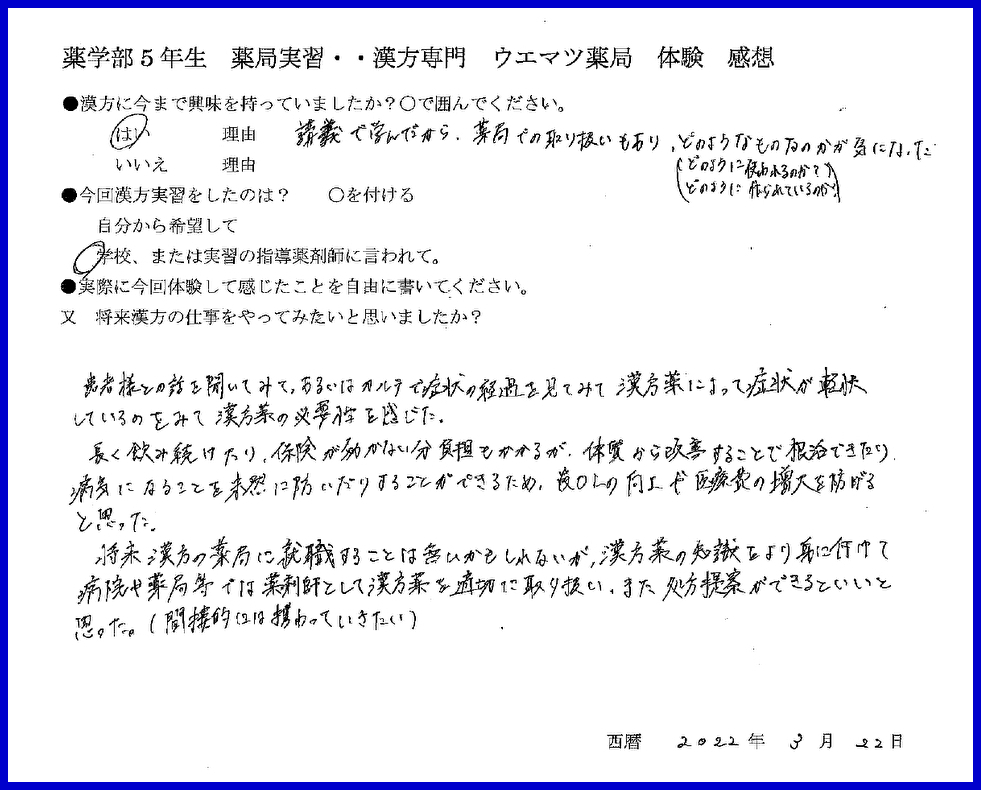 薬学部5年生 薬局実習・・漢方専門 ウエマツ薬局 体験 感想
●漢方に今まで興味を持っていましたか?○で囲んでください。
はい 理由 講義で学んだから、薬局での取り扱いもあり、どのようなものなのかが気になった
(どのように使われるのか?
いいえ 理由
どのように作られているのか?)
●今回漢方実習をしたのは? ○を付ける
自分から希望して
学校、または実習の指導薬剤師に言われて。
●実際に今回体験して感じたことを自由に書いてください。
又 将来漢方の仕事をやってみたいと思いましたか?
患者様との話を聞いてみて、あるいはカルテで症状の経過を見てみて漢方薬によって症状が軽快
しているのをみて漢方薬の必要性を感じた。
長く飲み続けたり、保険が効かない分負担もかかるが、体質から改善することで根治できたり
病気になることを未然に防いだりすることができるため、QOLの向上や医療費の増大を防げる
と思った。
将来漢方の薬局に就職することは無いかもしれないが、漢方薬の知識をより身に付けて
病院や薬局等では薬剤師として漢方薬を適切に取り扱い、また処方提案ができるといいと
思った。(間接的には携わっていきたい)
西暦 2022年 3月 22日